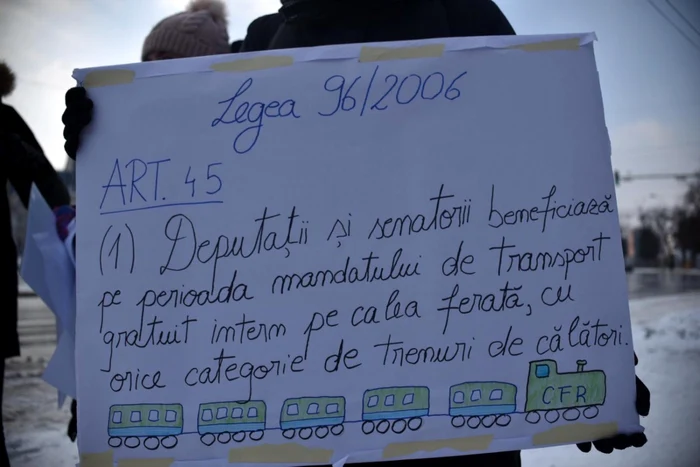 Legea 96/2006
ART. 45
(1) Deputații și senatorii beneficiază
pe perioada mandatului de transport
gratuit intern pe calea ferată, cu
orice categorie de trenuri de călători.
CFR